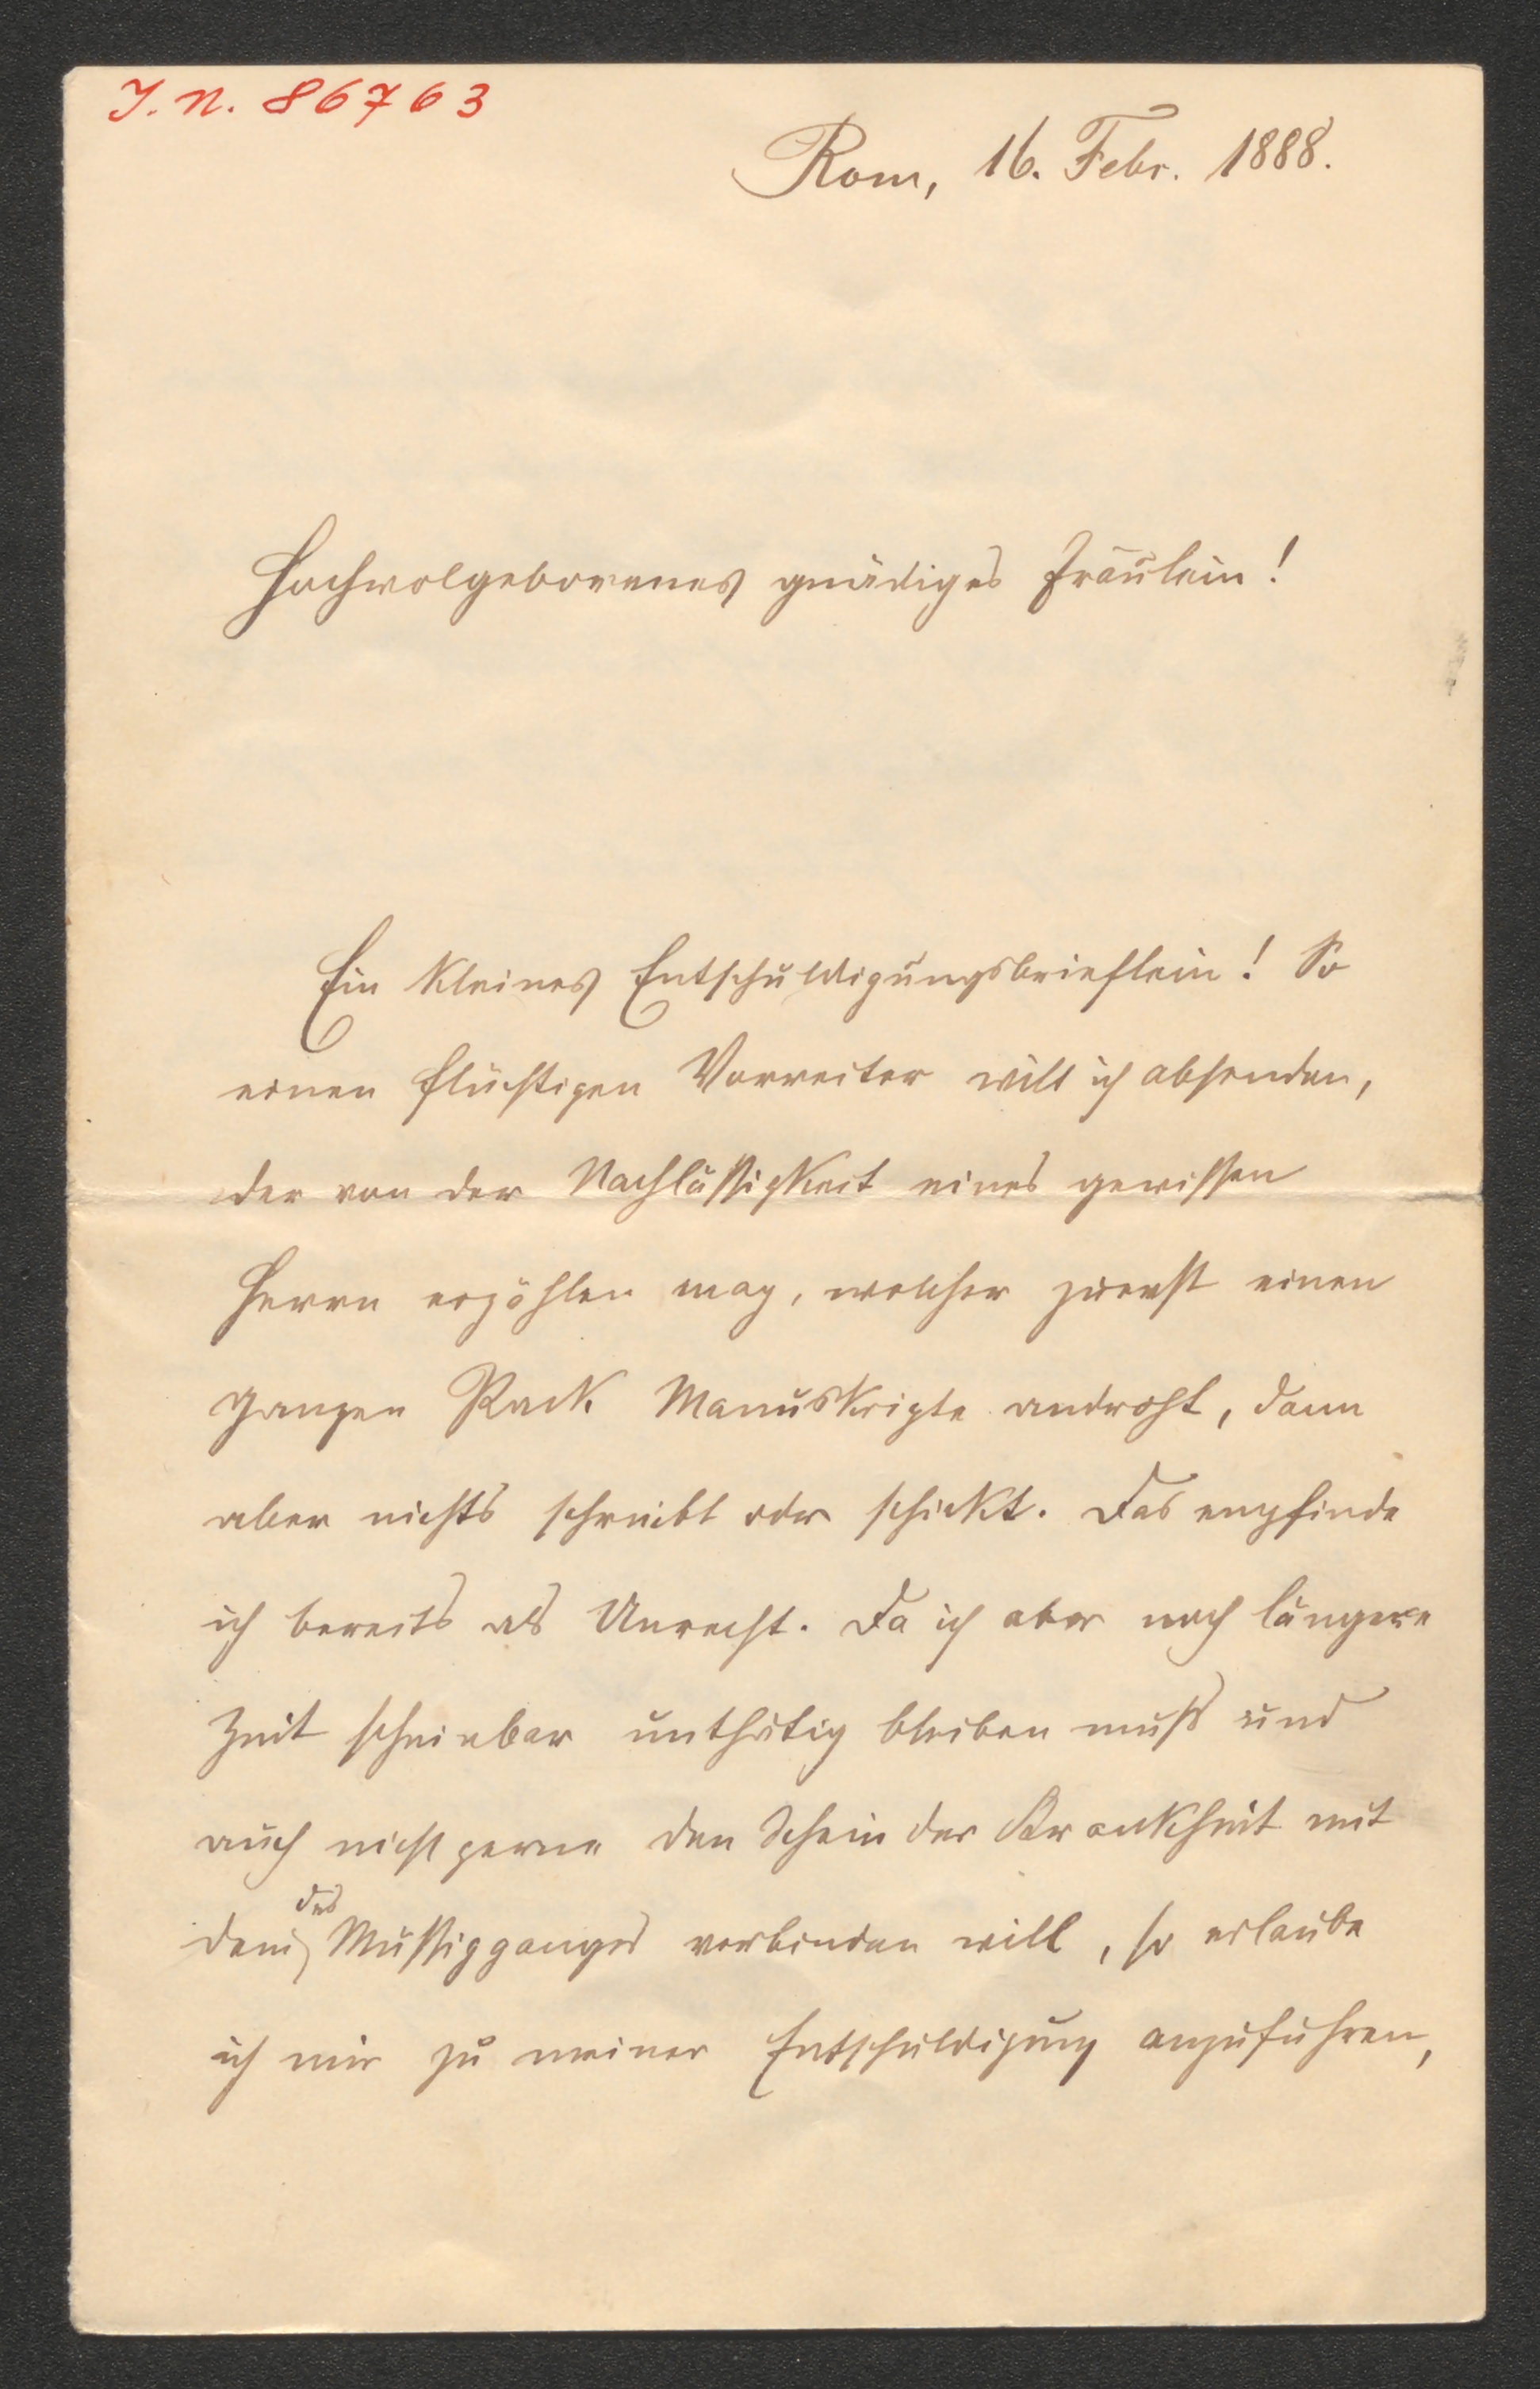 J. N. 86763
Rom, 16. Febr. 1888.
Hochwolgeborenes gnädiges Fräulein!
Ein kleines Entschuldigungsbrieflein! So
einen flüchtigen Vorreiter will ich absenden,
der von der Nachlässigkeit eines gewissen
Herrn erzählen mag, welcher zuerst einen
ganzen Pack Manuskripte androht, dann
aber nichts schreibt oder schickt. Das empfinde
ich bereits als Unrecht. Da ich aber noch längere
Zeit scheinbar unthätig bleiben muß und
auch nicht gerne den Schein der Krankheit mit
dem des Müssigganges verbinden will, so erlaube
ich mir zu meiner Entschuldigung anzuführen,